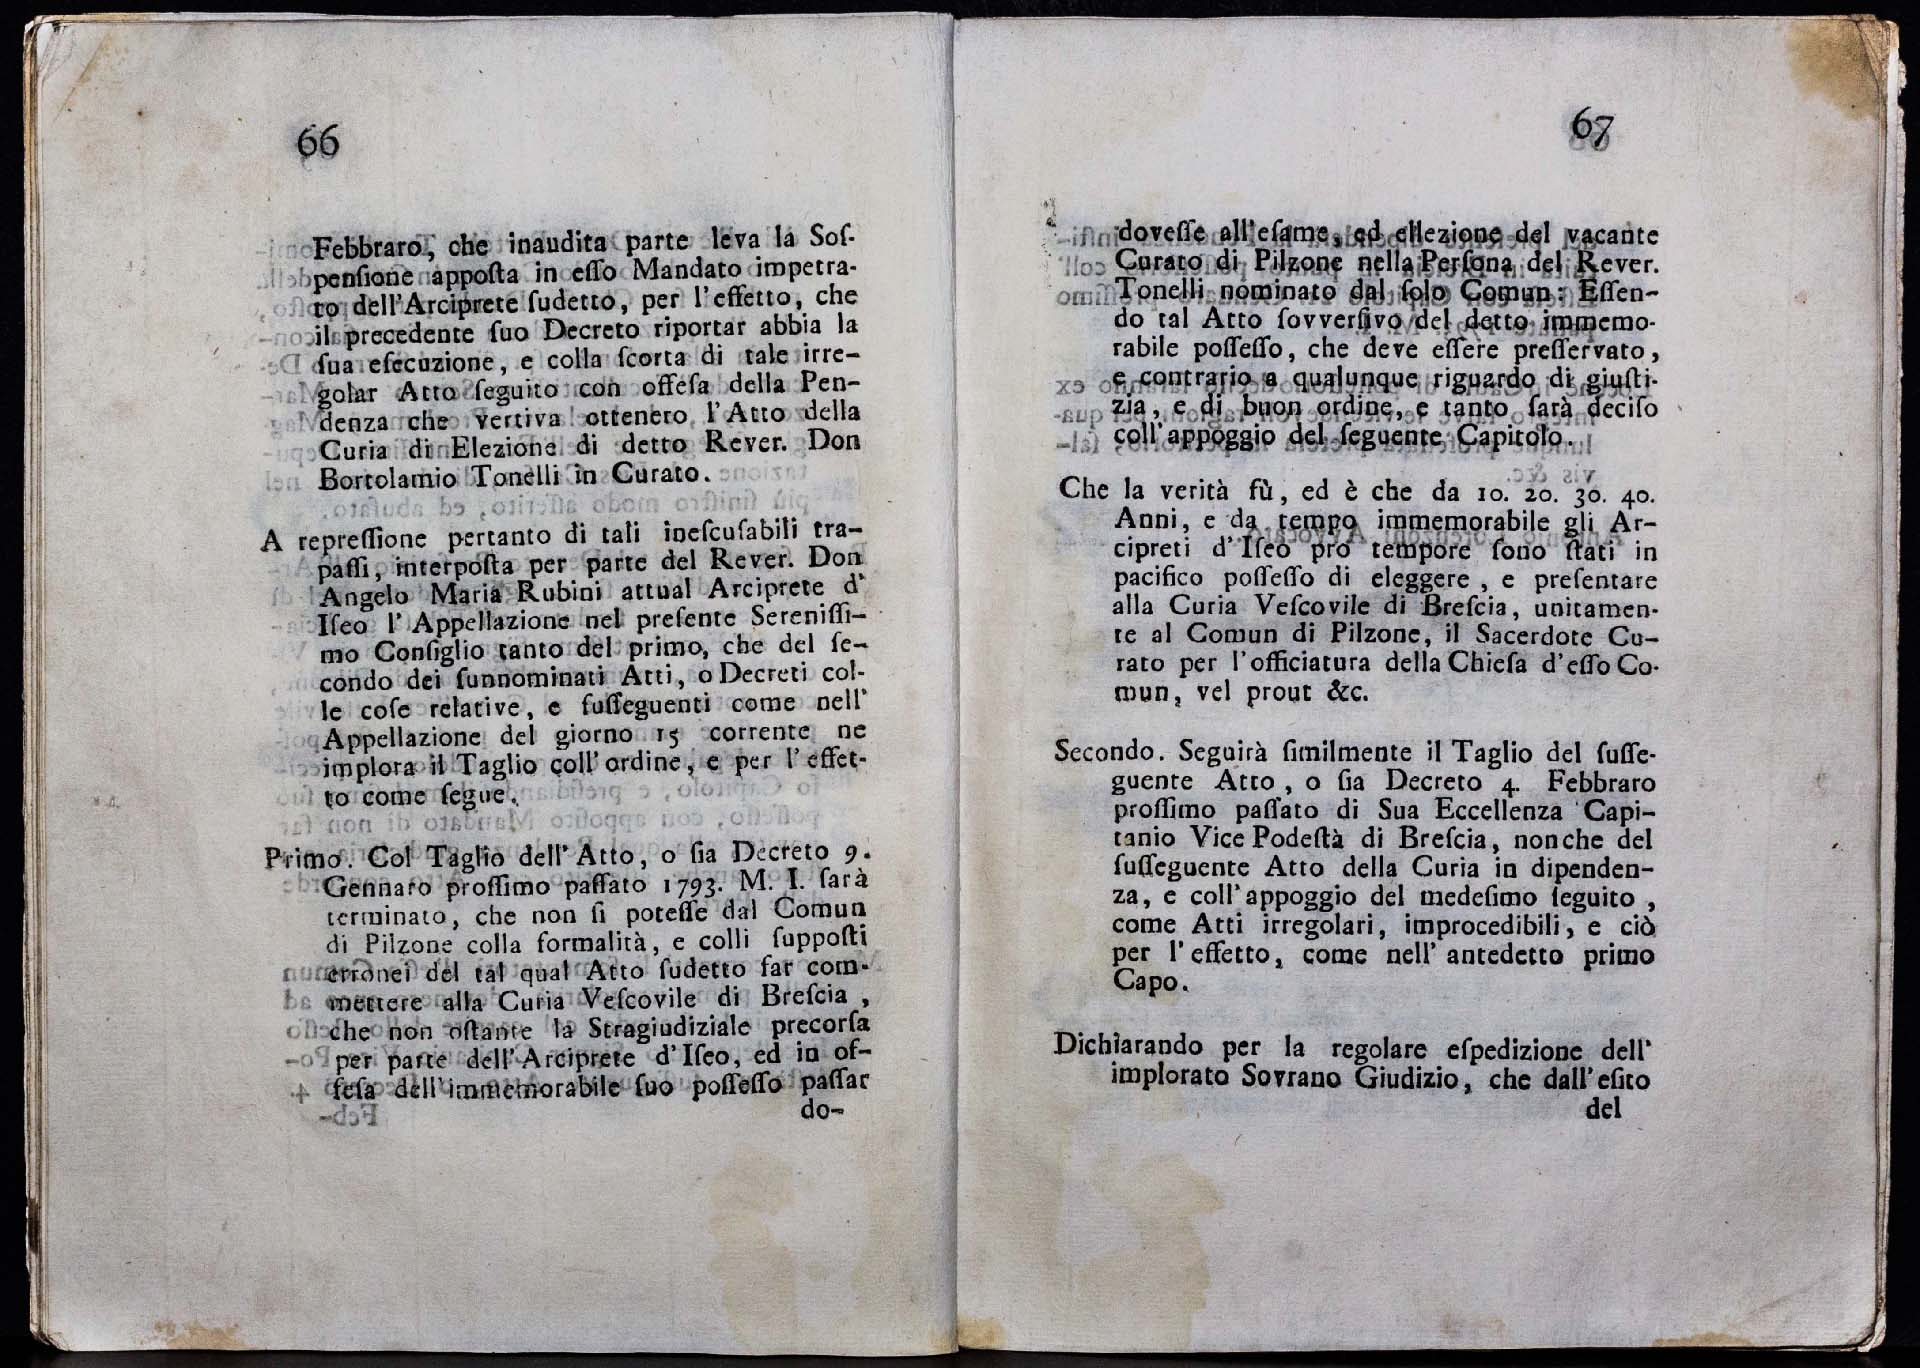 66
Febbraro, che inaudita parte leva la Soſ-
penſione appoſta in eſſo Mandato impetra-
to dell'Arciprete ſudetto, per l'effetto, che
il precedente ſuo Decreto riportar abbia la
ſua eſecuzione, e colla ſcorta di tale irre-
golar Atto ſeguito con offeſa della Pen-
denza che vertiva ottenero l'Atto della
Curia di Elezione di detto Rever. Don
Bortolamio Tonelli in Curato.
A repreſſione pertanto di tali ineſcuſabili tra-
paſſi, interpoſta per parte del Rever. Don
Angelo Maria Rubini attual Arciprete d'
Iſeo l'Appellazione nel preſente Sereniſſi-
mo Conſiglio tanto del primo, che del ſe-
condo dei ſunnominati Atti, o Decreti col-
le coſe relative, e ſuſſeguenti come nell'
Appellazione del giorno 15 corrente ne
implora il Taglio coll'ordine, e per l'effet-
to come ſegue.
Primo. Col Taglio dell'Atto, o ſia Decreto 9.
Gennaro proſſimo paſſato 1793. M. I. ſarà
terminato, che non ſi poteſſe dal Comun
di Pilzone colla formalità, e colli ſuppoſti
erronei del tal qual Atto ſudetto far com-
mettere alla Curia Veſcovile di Breſcia,
che non oſtante la Stragiudiziale precorſa
per parte dell'Arciprete d'Iſeo, ed in of-
feſa dell'immemorabile ſuo poſſeſſo paſſar
do-
67
doveſſe all'eſame, ed ellezione del vacante
Curato di Pilzone nella Perſona del Rever.
Tonelli nominato dal ſolo Comun: Eſſen-
do tal Atto ſovverſivo del detto immemo-
rabile poſſeſſo, che deve eſſere preſſervato,
e contrario a qualunque riguardo di giuſti-
zia, e di buon ordine, e tanto ſarà deciſo
coll'appoggio del ſeguente Capitolo.
Che la verità fù, ed è che da 10. 20. 30. 40.
Anni, e da tempo immemorabile gli Ar-
cipreti d'Iſeo pro tempore ſono ſtati in
pacifico poſſeſſo di eleggere, e preſentare
alla Curia Veſcovile di Breſcia, unitamen-
te al Comun di Pilzone, il Sacerdote Cu-
rato per l'officiatura della Chieſa d'eſſo Co-
mun, vel prout &c.
Secondo. Seguirà ſimilmente il Taglio del ſuſſe-
guente Atto, o ſia Decreto 4. Febbraro
proſſimo paſſato di Sua Eccellenza Capi-
tanio Vice Podeſtà di Breſcia, nonche del
ſuſſeguente Atto della Curia in dipenden-
za, e coll'appoggio del medeſimo ſeguito,
come Atti irregolari, improcedibili, e ciò
per l'effetto, come nell'antedetto primo
Capo.
Dichiarando per la regolare eſpedizione dell'
implorato Sovrano Giudizio, che dall'eſito
del